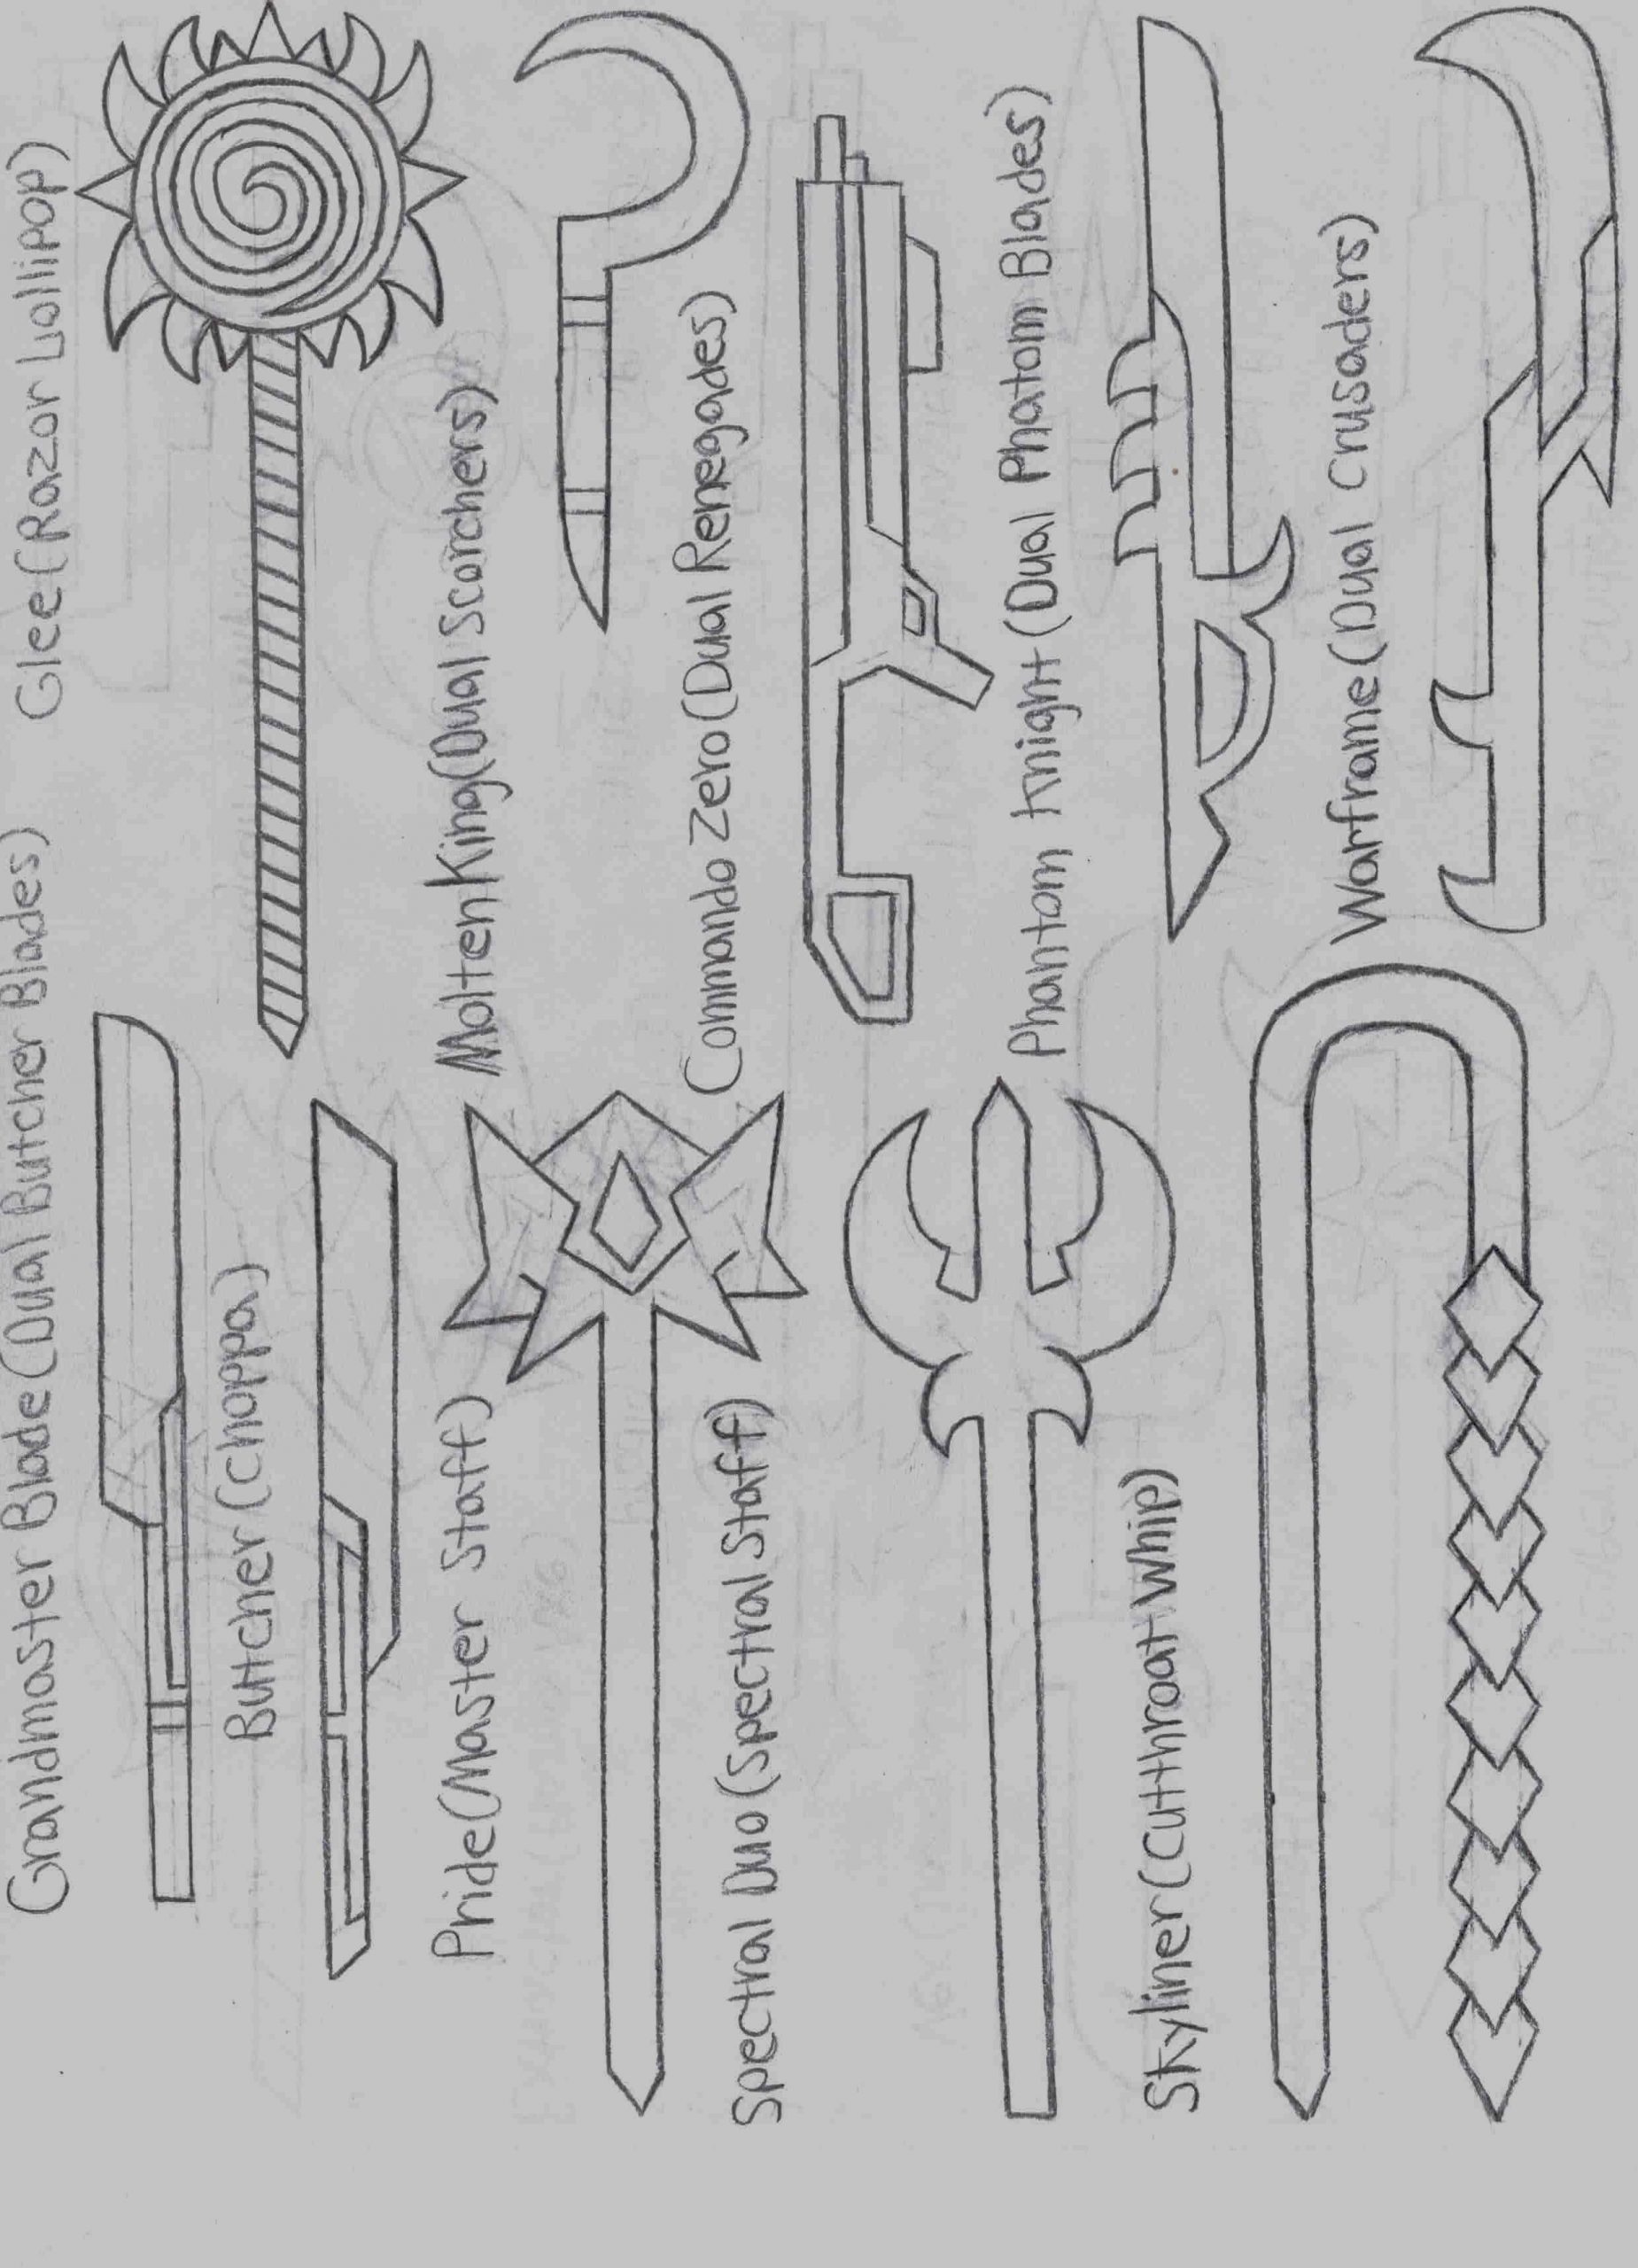 Grandmaster Blade(Dual Butcher Blades)
Glee(Razor Lollipop)
Butcher(Choppa)
Molten King(Dual Scorchers)
Pride(Master Staff)
Commando Zero(Dual Renegades)
Spectral Duo(Spectral Staff)
Phantom Knight(Dual Phatom Blades)
Skyliner(Cutthroat Whip)
Warframe(Dual Crusaders)